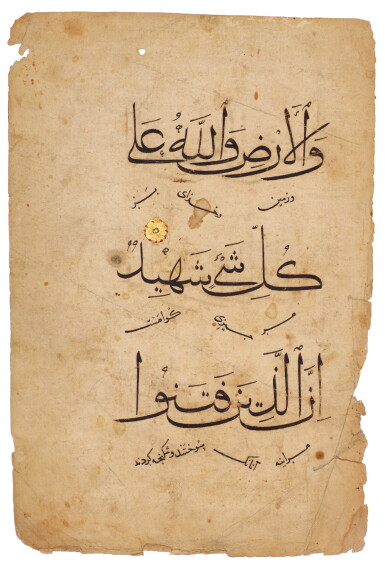 وَالْأَرْضِ وَاللَّهُ عَلَى
و زمین و خدای بر
كُلِّ شَيْءٍ شَهِيدٌ
هر چیزی گواهست
اِنَّ الَّذِينَ فَتَنُوا
هر اینه آنانک بسوختند و شکنجه کردند